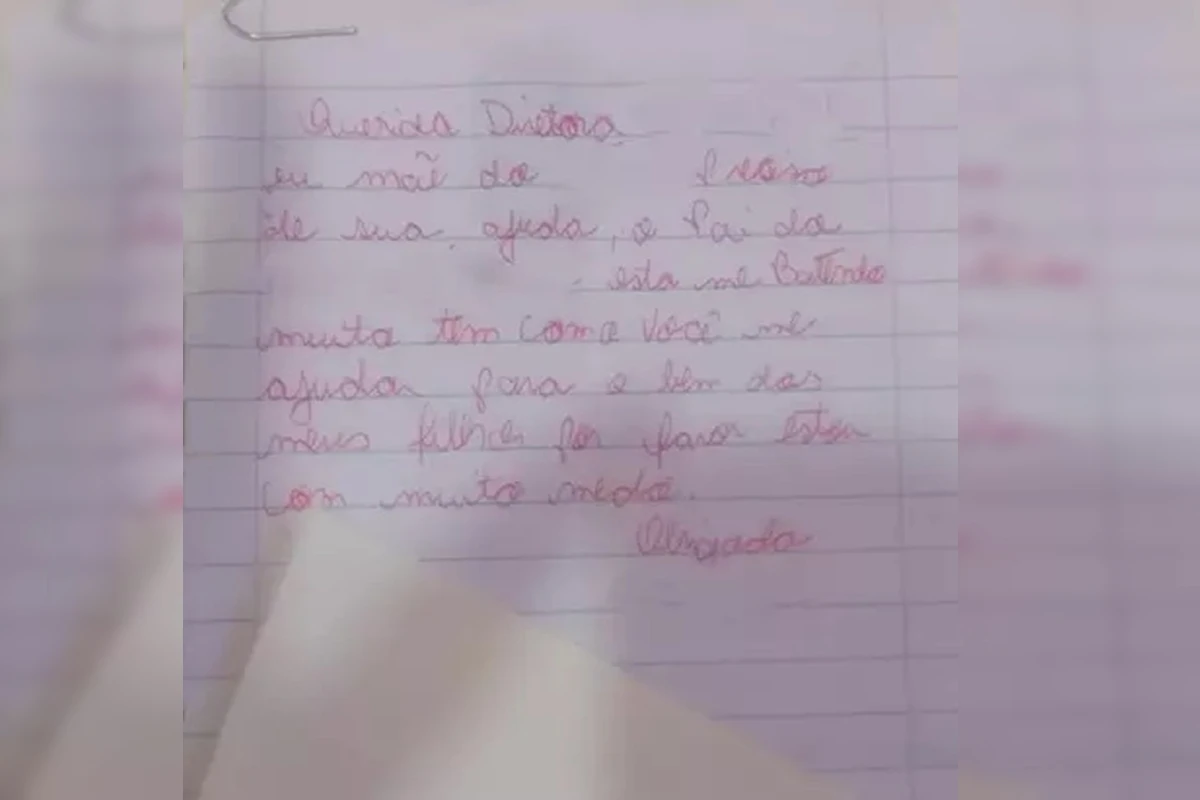 Querida Diretora,
eu mãe da preciso
de sua ajuda, o Pai da
esta me Batendo
muito tem como você me
ajudar para o bem dos
meus filhos por favor estou
com muito medo.
Obrigada